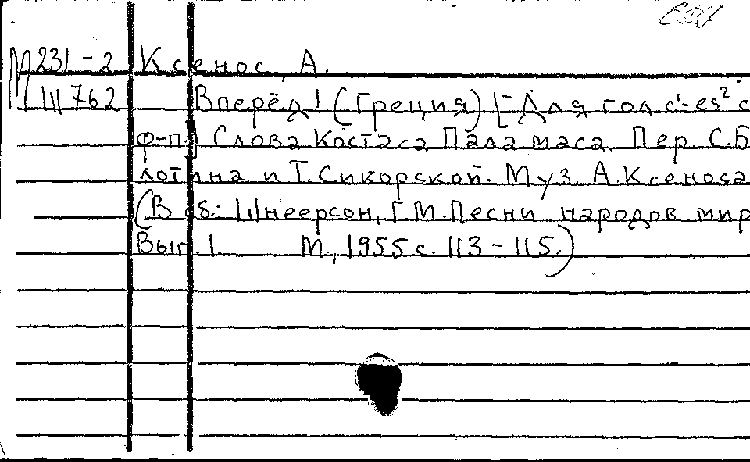 М231-2 Ксенос, А.
Ш762 Вперёд! (Греция) [Для гол. c¹-es² с
ф-п.] Слова Костаса Паламаса. Пер. С.Б
лотина и Т. Сикорской. Муз. А. Ксеноса
(В сб.: Шнеерсон, Г.М. Песни народов мир
Вып. 1 М., 1955 с. 113-115.)